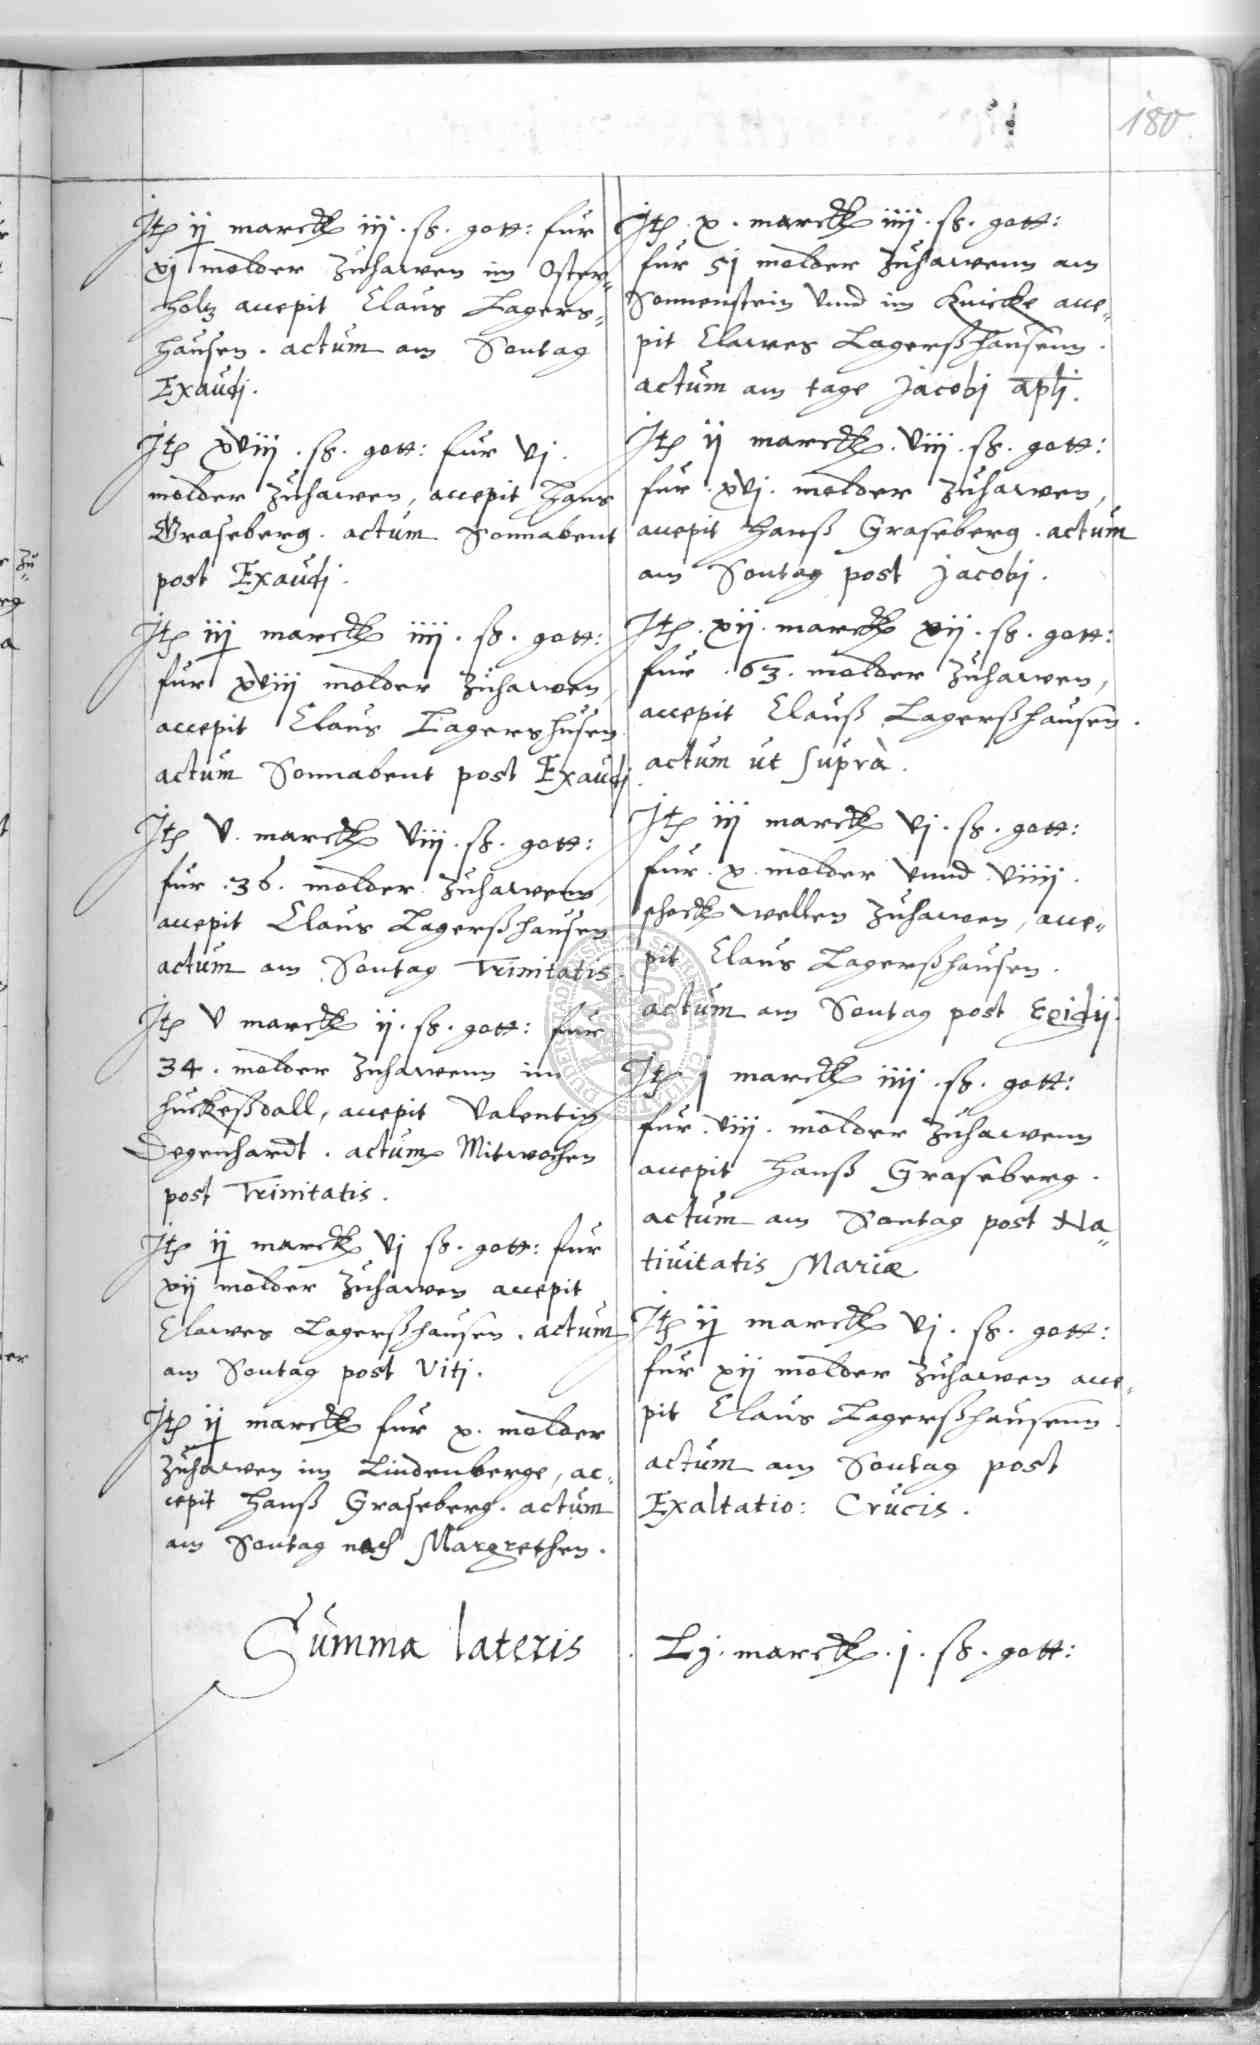 180
Jtem ij marck iij . ß. gott: fur
xj molder zuhawen im Oster„
holtz accepit Claus Lagers„
hausen . actum am Sontag
Exaudj .
Jtem xviij . ß. gott: fur vj .
molder zuhawen, accepit Hans
Graseberg . actum Sonnabent
post Exaudj .
Jtem iij marck iiij . ß. gott:
fur xviij molder zuhawen,
accepit Claus Lagershusen
actum Sonnabent post Exaudj
Jtem v . marck viij . ß. gott:
fur . 36 . molder zuhawenn,
accepit Claus Lagerßhausen
actum am Sontag Trinitatis .
Jtem v marck ij . ß. gott: fur
34 . molder zuhawenn im
huckeßdall, accepit Valentin
Degenhardt . actum Mitwochen
post Trinitatis .
Jtem ij marck vj ß. gott: fur
xij molder zuhawen accepit
Clawes Lagerßhausen . actum
am Sontag post Vitj .
Jtem ij marck fur x . molder
zuhawen im Lindenberge, ac„
cepit Hanß Graseberg . actum
am Sontag nach Margrethen .
Jtem . x . marck iiij . ß. gott:
fur 51 molder zuhawenn am
Sonnenstein vnnd im Knicke acce„
pit Clawes Lagerßhausenn .
actum am tage Jacobj apli .
Jtem ij marck . viij . ß. gott:
fur . xvj . molder zuhawen,
accepit Hanß Graseberg . actum
am Sontag post Jacobj .
Jtem . xij . marck xij . ß. gott:
fur . 63 . molder zuhawen,
accepit Clauß Lagerßhausen .
actum ut suprà .
Jtem iij marck vj . ß. gott:
fur . x . molder vnnd viiij .
schock wellen zuhawen, acce„
pit Claus Lagerßhausen .
actum am Sontag post Egidij .
Jtem j marck iiij . ß. gott:
fur . viij . molder zuhawenn
accepit Hanß Graseberg .
actum am Sontag post Na„
tiuitatis Mariæ
Jtem ij marck vj . ß. gott:
fur xij molder zuhawen acce„
pit Claus Lagerßhausenn .
actum am Sontag post
Exaltatio: Crucis .
Summa lateris . Lj . marck . j . ß. gott: